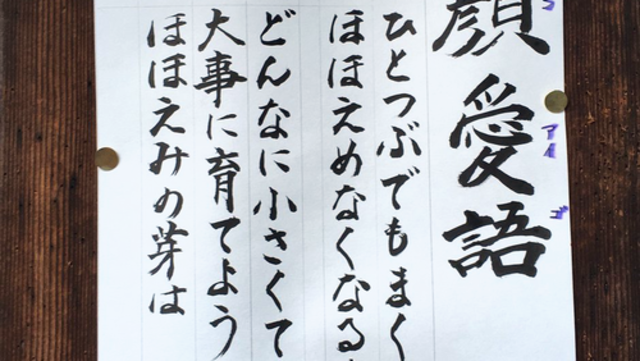 顔愛語
アイ ゴ
ひとつぶでもまく
ほほえめなくなる
どんなに小さくて
大事に育てよう
ほほえみの芽は